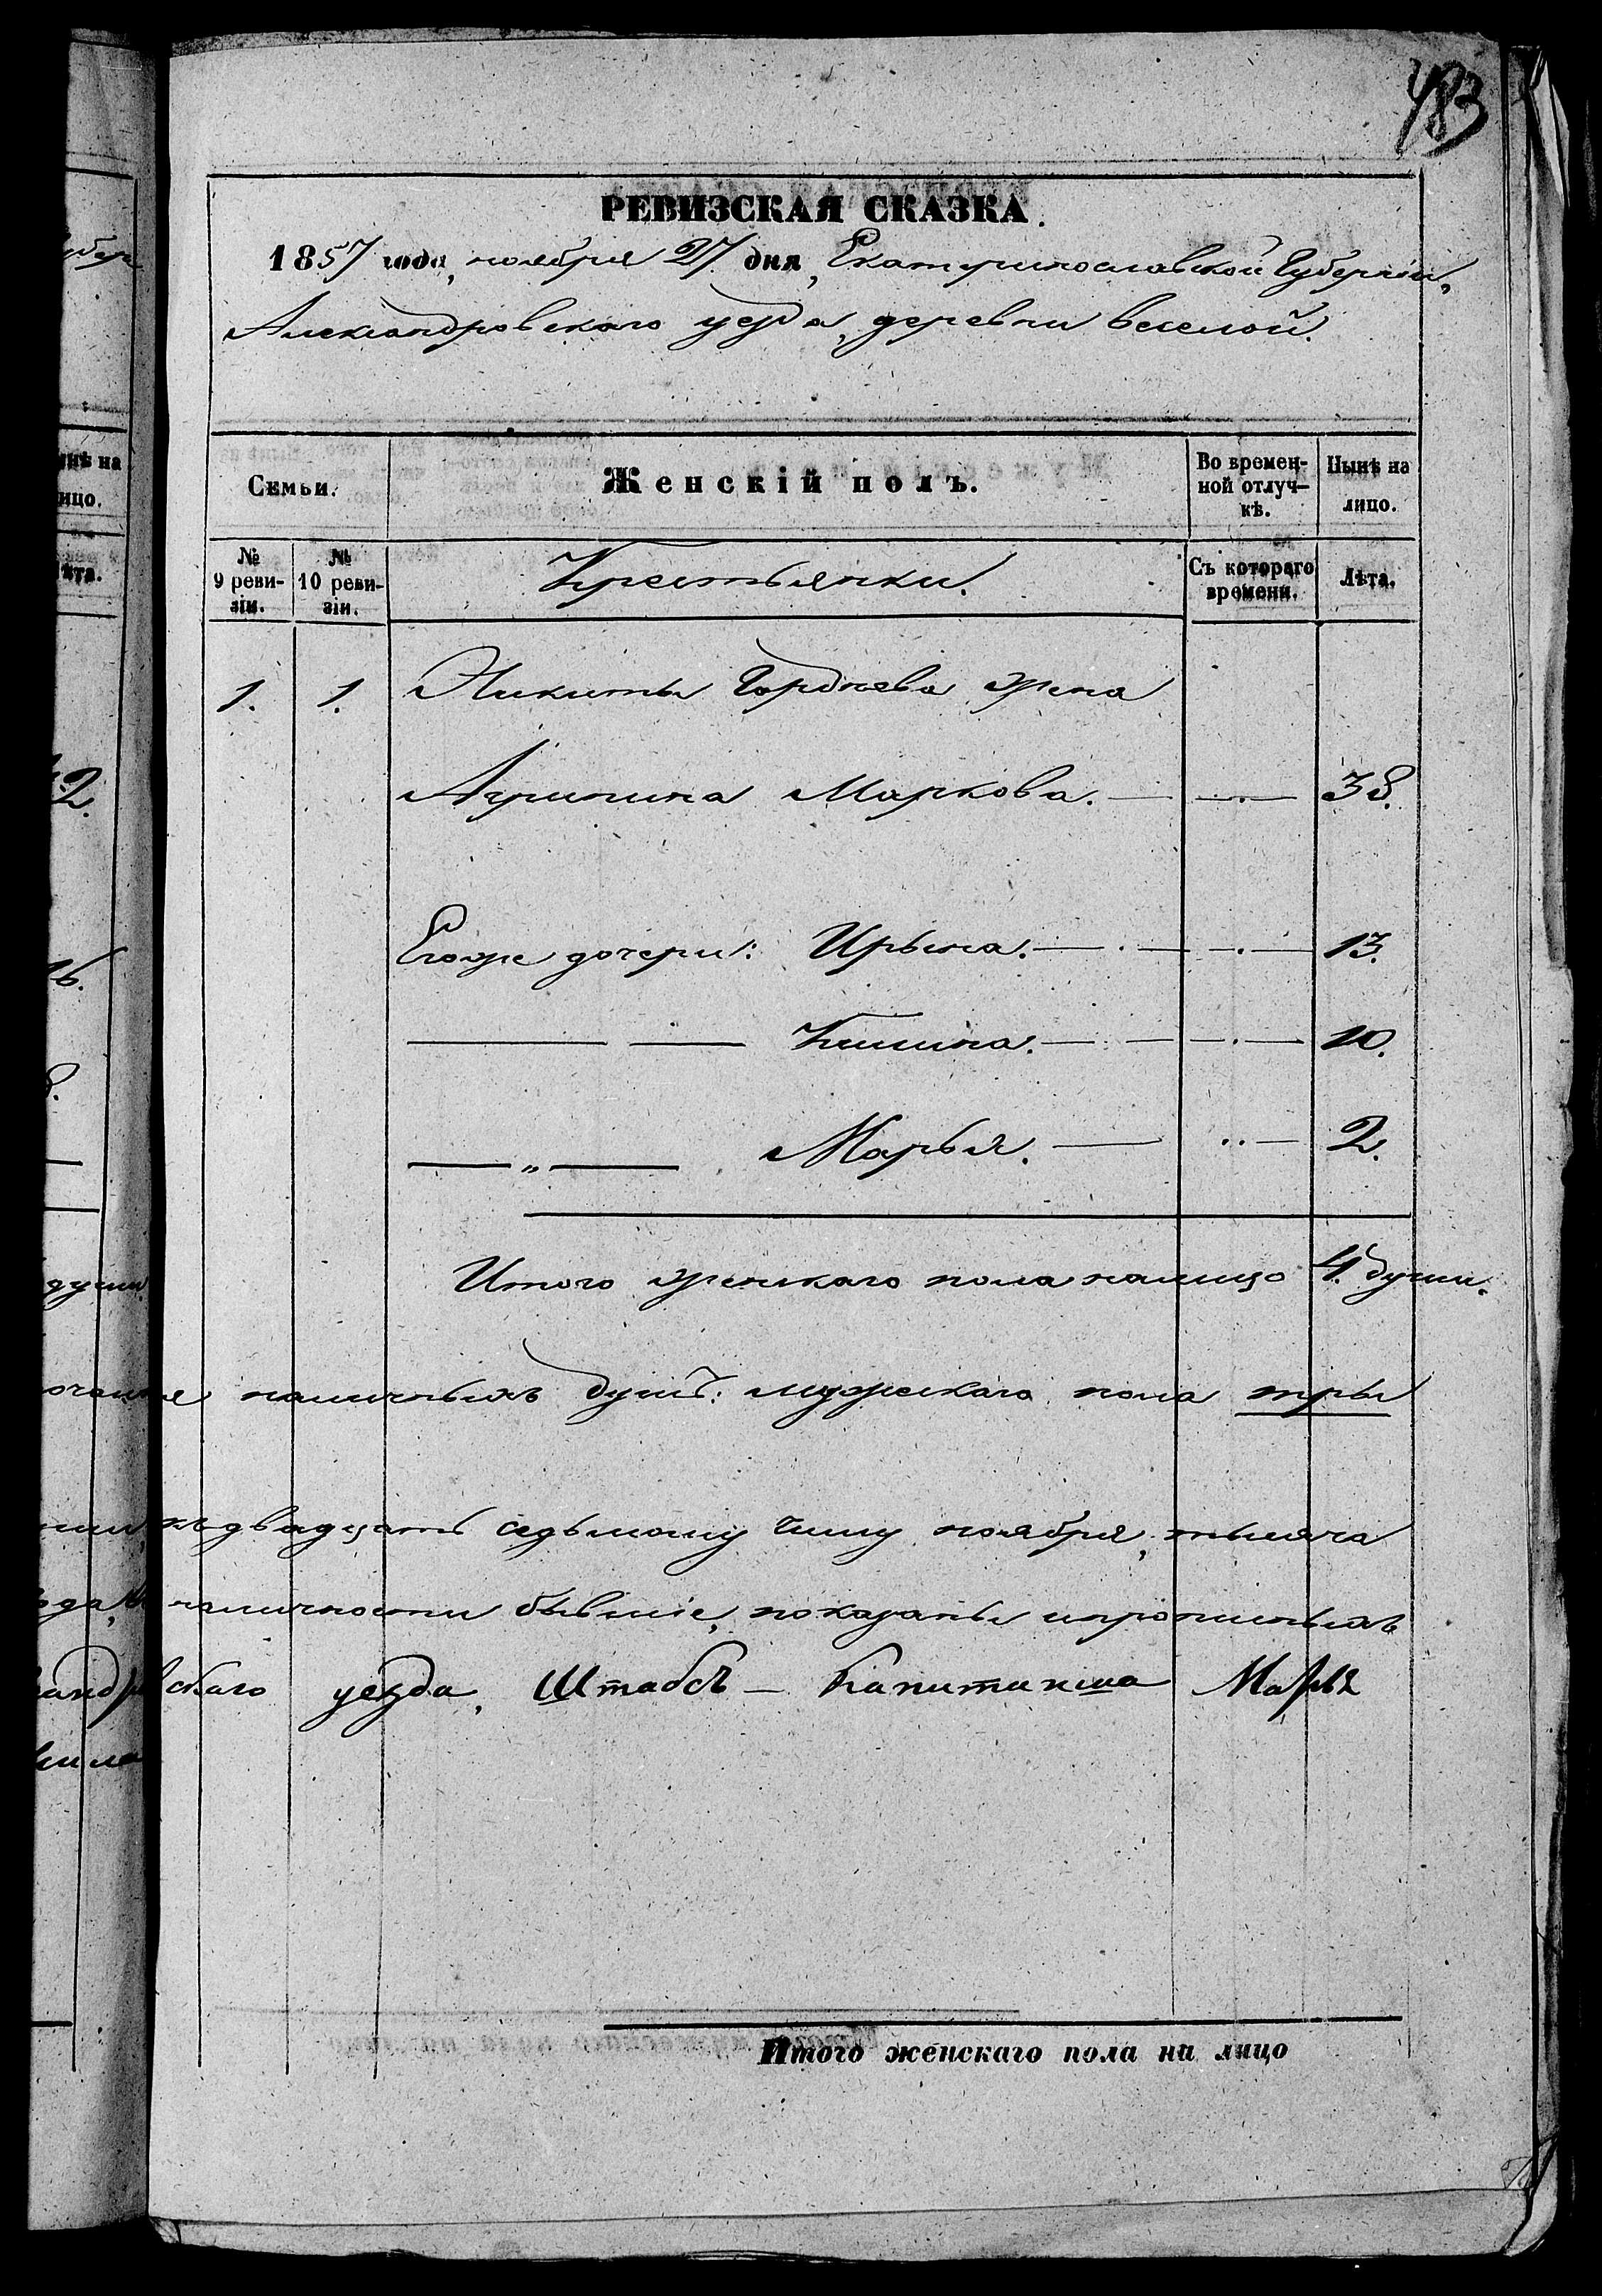 483
РЕВИЗСКАЯ СКАЗКА.
1857 года, ноября 27 дня, Екатеринославской Губерніи,
Александровскаго уезда, деревни Веселой.
Семьи.
Женскій полъ.
Во времен-
ной отлуч-
кѣ.
Нынѣ на
лицо.
№
9 реви-
зіи.
№
10 реви-
зіи.
Крестьянки.
Съ котораго
времени.
Лѣта.
1. 1. Никиты Гордѣева жена
Агрипина Маркова. 38.
Егоже дочери: Ирына. 13.
10.
Марья. 2.
Итого женскаго пола налицо 4. души.
наличныхъ душъ: мужескаго пола тры
къ двадцать седьмому числу ноября, тысяча
наличности бывшіе, показаны и прописныхъ
скаго уезда, Штабсъ - Капитанша Марья
Итого женскаго пола на лицо
нѣ на
ицо.
ѣта.
2.
6.
8.
души.